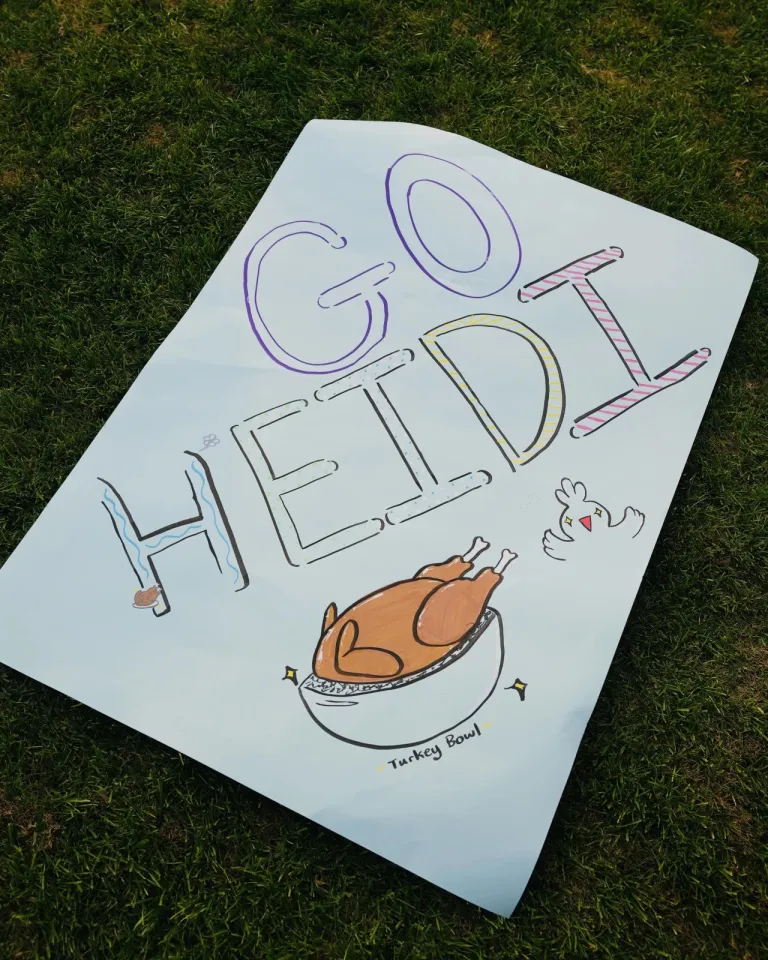 GO
HEIDI
Turkey Bowl